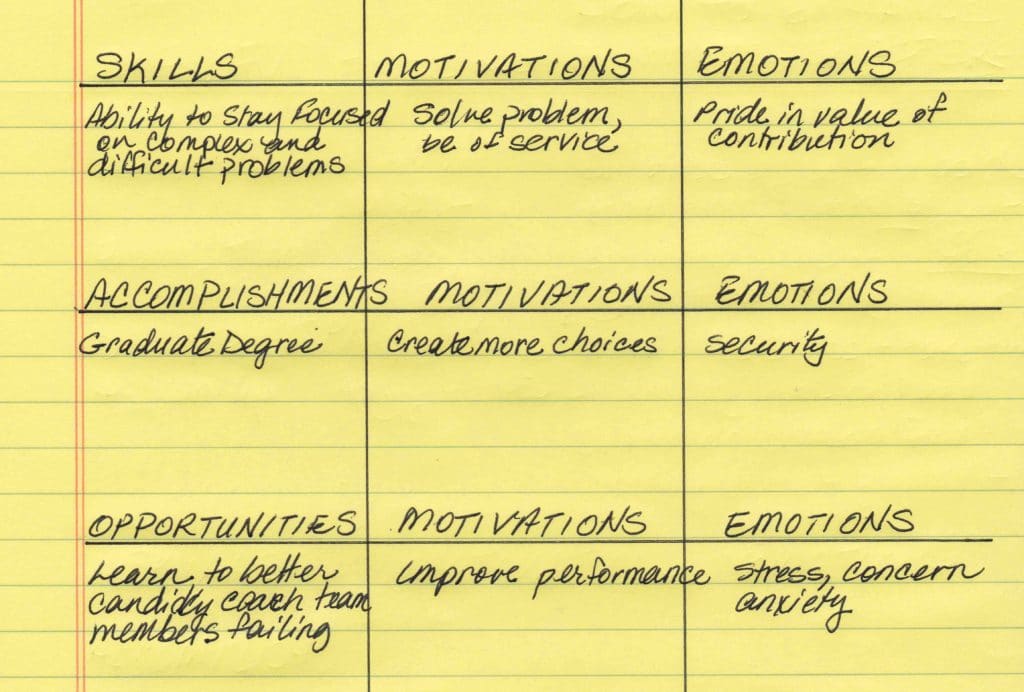 SKILLS MOTIVATIONS EMOTIONS
Ability to Stay Focused Solve problem, Pride in value of
on complex and be of service contribution
difficult problems
ACCOMPLISHMENTS MOTIVATIONS EMOTIONS
Graduate Degree Create more choices Security
OPPORTUNITIES MOTIVATIONS EMOTIONS
Learn to better Improve performance Stress, concern
candidly coach team anxiety
members failing